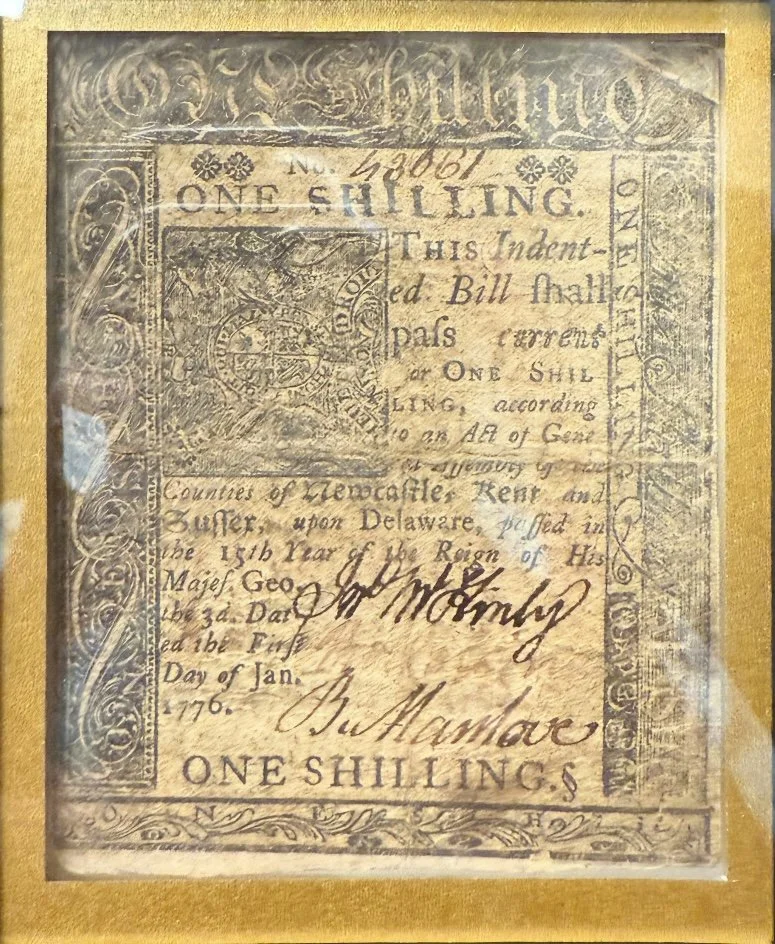 ONE Shilling
No. 43061
ONE SHILLING.
THIS Indent-
ed Bill ſhall
paſs current
for ONE SHIL
LING, according
to an Act of Gene
ral Aſſembly of the
Counties of Newcaſtle, Kent and
Suſſex, upon Delaware, paſſed in
the 15th Year of the Reign of His
Majeſ. Geo.
the 3d. Dat
ed the Firſt
Day of Jan.
1776.
Jno McKinly
B Manlove
ONE SHILLING.§
ONE SHILLING
DROIT
ONE SHI